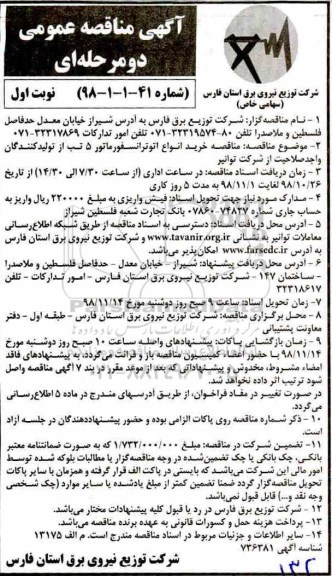 آگهی مناقصه عمومی
دومرحله‌ای
شرکت توزیع نیروی برق استان فارس
(سهامی خاص)
(شماره ۴۱-۱-۱-۹۸)
نوبت اول
۱ - نام مناقصه‌گزار: شرکت توزیع برق فارس به آدرس شیراز خیابان معدل حدفاصل
فلسطین و ملاصدرا تلفن ۸۰-۳۲۳۱۹۵۷۴-۰۷۱ تلفن امور تدارکات ۳۲۳۱۷۸۶۹-۰۷۱
۲ - موضوع مناقصه: مناقصه خرید انواع اتوترانسفورماتور ۵ تپ از تولیدکنندگان
واجدصلاحیت از شرکت توانیر
۳ - زمان دریافت اسناد مناقصه: در ساعت اداری (از ساعت ۷/۳۰ الی ۱۴/۳۰) از تاریخ
۹۸/۱۰/۲۶ لغایت ۹۸/۱۱/۱ به مدت ۵ روز کاری
۴ - مدارک مورد نیاز جهت تحویل اسناد: فیش واریزی به مبلغ ۲۲۰۰۰۰ ریال واریز به
حساب جاری شماره ۰۷۸۶۰۰۷۴۸۳۷ بانک تجارت شعبه فلسطین شیراز
۵ - آدرس محل دریافت اسناد: دسترسی به اسناد مناقصه از طریق شبکه اطلاع‌رسانی
معاملات توانیر به نشانی www.tavanir.org.ir و شرکت توزیع نیروی برق استان فارس
به آدرس www.farsedc.ir امکان‌پذیر می‌باشد.
۶ - آدرس محل دریافت پیشنهاد: شیراز - خیابان معدل - حدفاصل فلسطین و ملاصدرا
- ساختمان ۱۴۷ - شرکت توزیع نیروی برق استان فارس - امور تدارکات - تلفن
۳۲۳۱۸۶۱۷
۷- زمان تحویل اسناد: ساعت ۹ صبح روز دوشنبه مورخ ۹۸/۱۱/۱۴
۸ - محل برگزاری مناقصه: شرکت توزیع نیروی برق استان فارس - طبقه اول - دفتر
معاونت پشتیبانی
۹ - زمان بازگشایی پاکات: پیشنهادهای واصله ساعت ۱۰ صبح روز دوشنبه مورخ
۹۸/۱۱/۱۴ با حضور اعضاء کمیسیون مناقصه باز و قرائت می‌گردد، به پیشنهادهای فاقد
امضاء مشروط، مخدوش و پیشنهاداتی که بعد از موعد مقرر در بند ۷ آگهی مناقصه واصل
شود ترتیب اثر داده نخواهد شد.
در صورت تغییر در مفاد فراخوان، از طریق آدرسهای مندرج در ماده ۵ اطلاع‌رسانی
می‌گردد.
۱۰ - ذکر شماره مناقصه روی پاکات الزامی بوده و حضور پیشنهاددهندگان در جلسه آزاد
است.
۱۱ - تضمین شرکت در مناقصه: مبلغ ۱/۷۳۲/۰۰۰/۰۰۰ که به صورت ضمانتنامه معتبر
بانکی، چک بانکی یا چک تضمین‌شده در وجه مناقصه‌گزار یا مطالبات بلوکه شده توسط
امور مالی این شرکت می‌باشد که بایستی در پاکت الف قرار گرفته و همزمان با سایر پاکات
تحویل مناقصه‌گزار گردد ضمنا تضمین کمتر از مبلغ یادشده یا سایر موارد (چک شخصی
وجه نقد و...) قابل قبول نمی‌باشد.
۱۲ - شرکت توزیع برق فارس در رد یا قبول کلیه پیشنهادات مختار می‌باشد.
۱۳ - پرداخت هزینه حمل و کسورات قانونی به عهده برنده مناقصه می‌باشد.
۱۴ - سایر اطلاعات و جزئیات مربوط در اسناد مناقصه مندرج است. م الف ۱۳۱۷۵
شناسه آگهی ۷۳۶۳۸۱
شرکت توزیع نیروی برق استان فارس